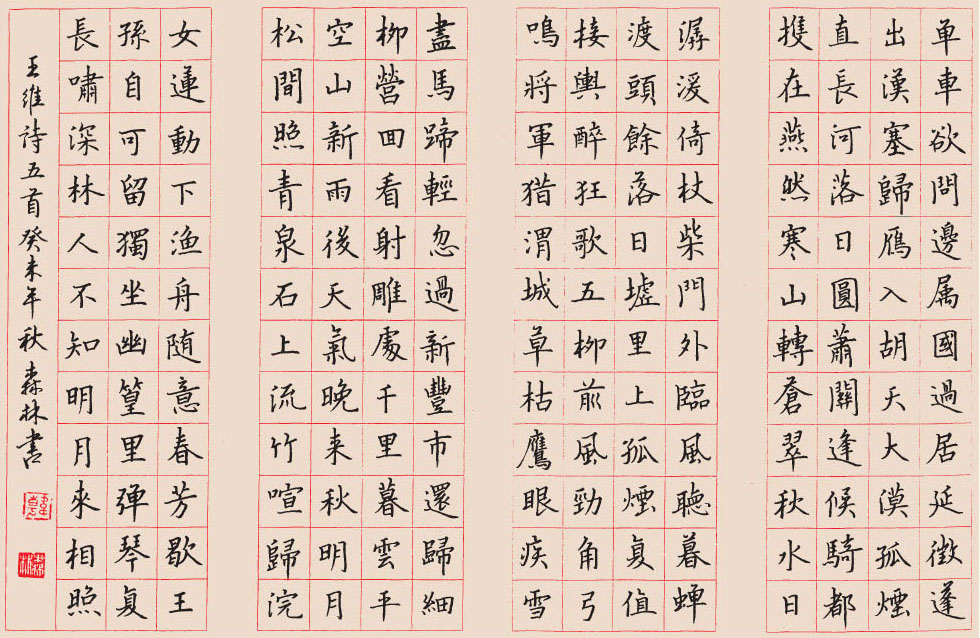 单車欲問邊属國過居延徵蓬
出漢塞歸鴈入胡天大漠孤煙
直長河落日圓蕭關逢候騎都
携在燕然寒山轉蒼翠秋水日
潺湲倚杖柴門外臨風聽暮蟬
渡頭餘落日墟里上孤煙复值
接輿醉狂歌五柳前風勁角弓
鳴將軍猎渭城草枯鷹眼疾雪
盡馬蹄輕忽過新豐市還歸細
柳營回看射雕處千里暮雲平
空山新雨後天氣晚来秋明月
松間照青泉石上流竹喧歸浣
女蓮動下渔舟随意春芳歇王
孫自可留獨坐幽篁里弹琴复
長嘯深林人不知明月來相照
王维詩五首癸未年秋森林書